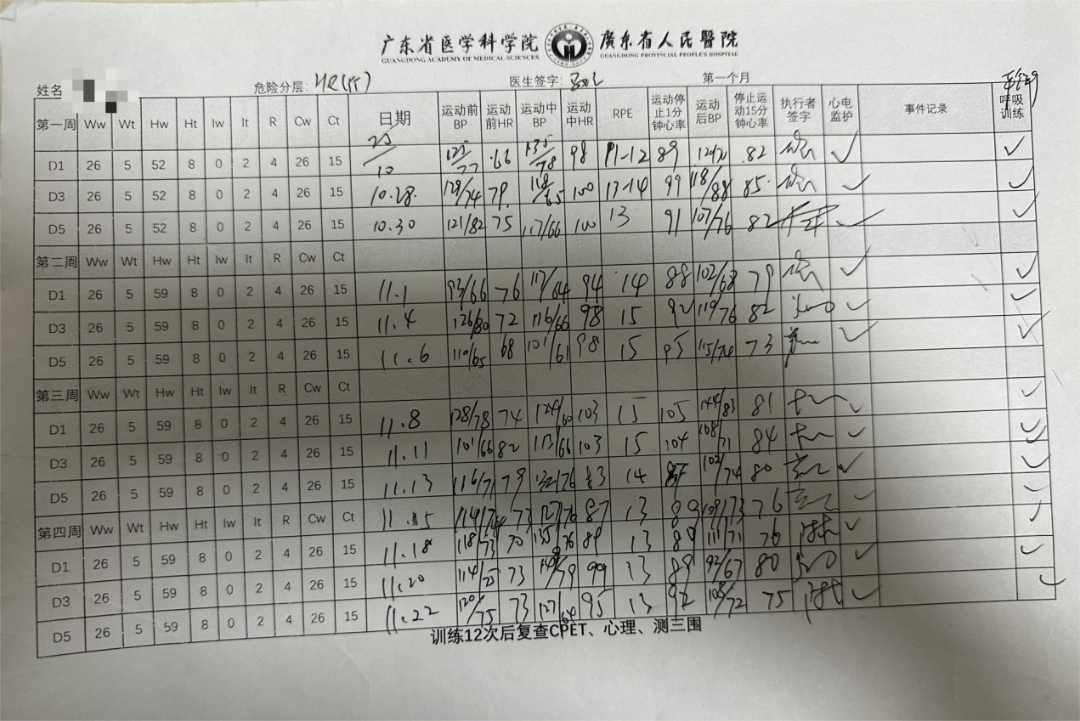 广东省医学科学院 廣东省人民醫院
GUANGDONG ACADEMY OF MEDICAL SCIENCES GUANGDONG PROVINCIAL PEOPLE'S HOSPITAL
姓名 危险分层: 医生签字: 第一个月
第一周 Ww Wt Hw Ht Iw It R Cw Ct 日期 运动前BP 运动前HR 运动中BP 运动中HR RPE 运动停止1分钟心率 运动后BP 停止运动15分钟心率 执行者签字 心电监护 事件记录 呼吸训练
D1 26 5 52 8 0 2 4 26 15 25/10 125/77 66 135/78 98 11-12 89 82 ✓ ✓
D3 26 5 52 8 0 2 4 26 15 10.28 129/74 79 100 13-14 99 118/88 85 ✓ ✓
D5 26 5 52 8 0 2 4 26 15 10.30 121/82 75 117/66 100 13 91 107/76 82 ✓ ✓
第二周 Ww Wt Hw Ht Iw It R Cw Ct
D1 26 5 59 8 0 2 4 26 15 11.1 93/66 76 117/64 94 14 88 102/68 79 ✓ ✓
D3 26 5 59 8 0 2 4 26 15 11.4 126/80 72 116/66 98 15 92 119/76 82 ✓ ✓
D5 26 5 59 8 0 2 4 26 15 11.6 110/65 68 101/61 98 15 95 115/74 73 ✓ ✓
第三周 Ww Wt Hw Ht Iw It R Cw Ct
D1 26 5 59 8 0 2 4 26 15 11.8 128/78 74 124/60 103 15 105 144/83 81 ✓ ✓
D3 26 5 59 8 0 2 4 26 15 11.11 101/66 82 103 15 104 108/71 84 ✓ ✓
D5 26 5 59 8 0 2 4 26 15 11.13 116/71 79 132/76 83 14 102/74 80 ✓ ✓
第四周 Ww Wt Hw Ht Iw It R Cw Ct 11.15 73 127/76 87 13 89 108/73 76 ✓ ✓
D1 26 5 59 8 0 2 4 26 15 11.18 118/73 70 89 13 89 111/71 76 ✓ ✓
D3 26 5 59 8 0 2 4 26 15 11.20 73 99 13 89 92/67 80 ✓ ✓
D5 26 5 59 8 0 2 4 26 15 11.22 120/75 73 127/64 95 13 92 108/72 75 ✓ ✓
训练12次后复查CPET、心理、测三围